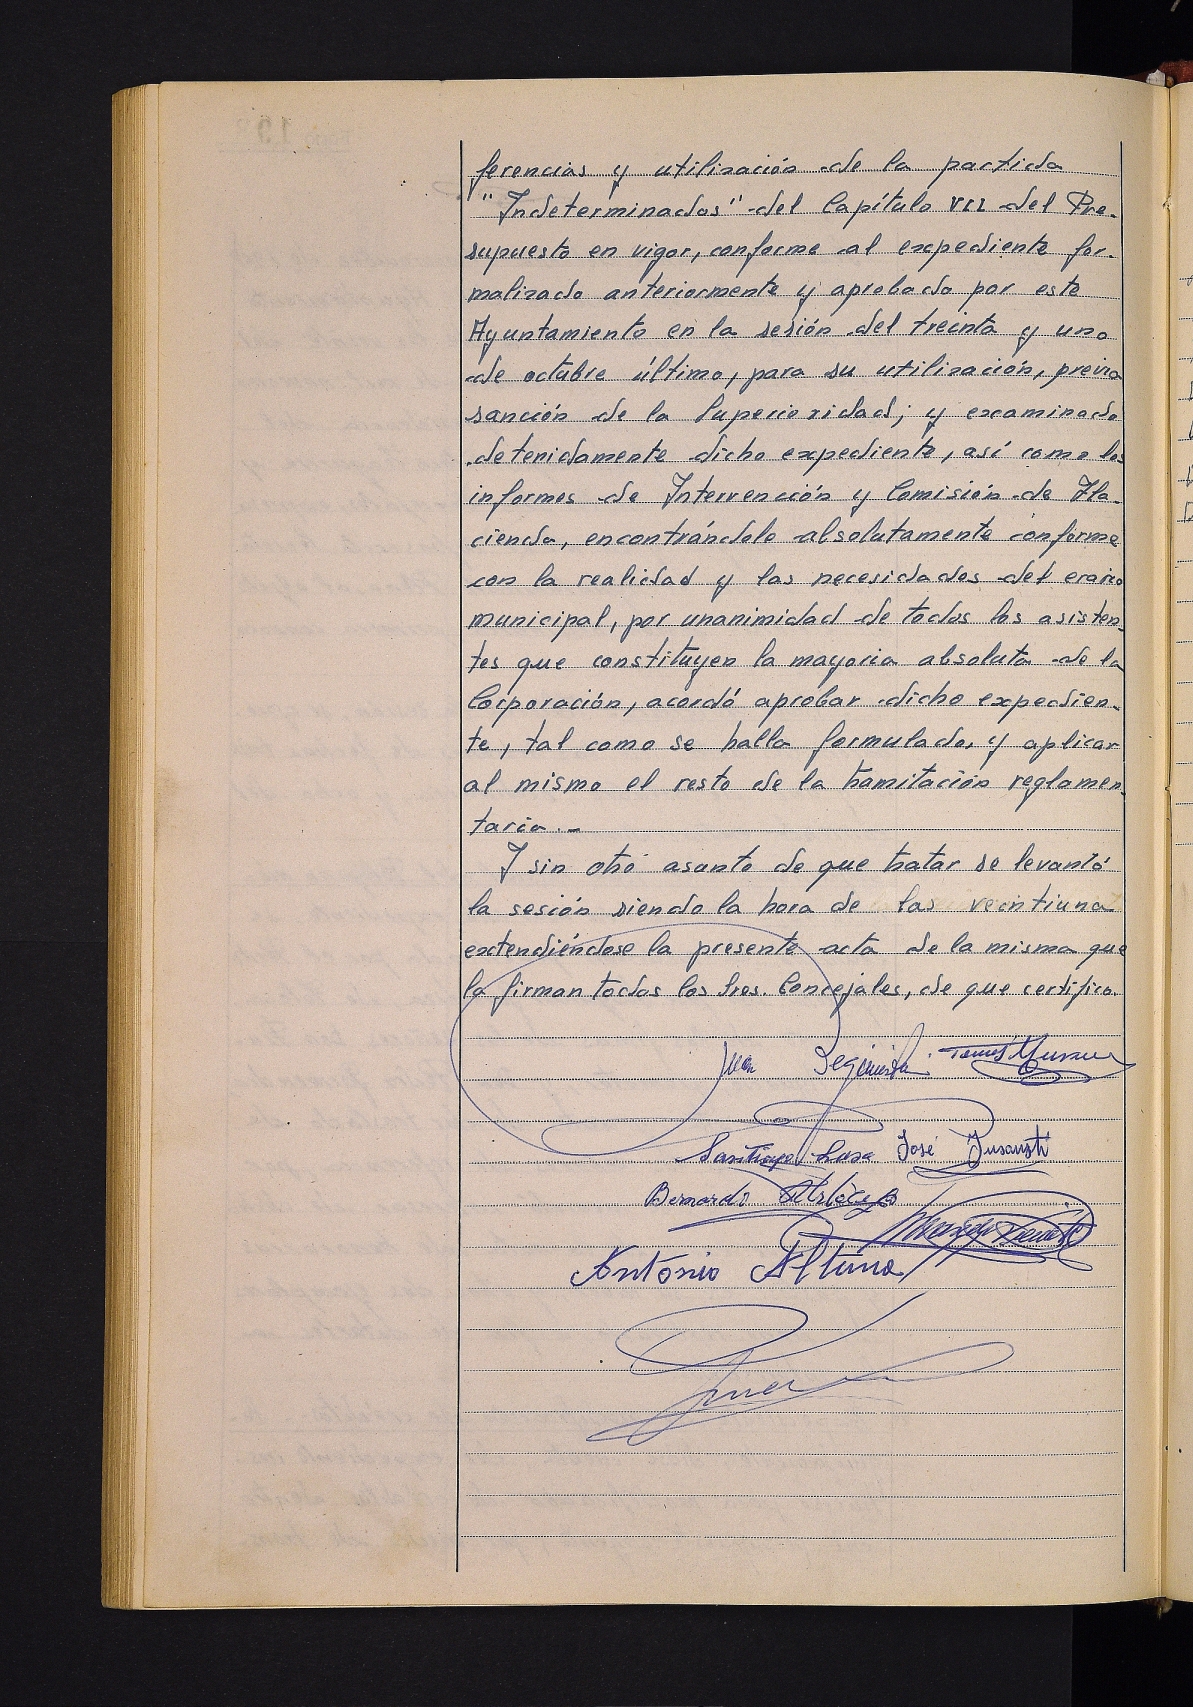 ferencias y utilización de la partida
"Indeterminados" del Capítulo VII del Pre-
supuesto en vigor, conforme al expediente for-
malizado anteriormente y aprobado por este
Ayuntamiento en la sesión del treinta y uno
de octubre último, para su utilización, previa
sanción de la Superioridad; y examinado
detenidamente dicho expediente, así como los
informes de Intervención y Comisión de Ha-
cienda, encontrándolo absolutamente conforme
con la realidad y las necesidades del erario
municipal, por unanimidad de todos los asisten-
tes que constituyen la mayoria absoluta de la
Corporación, acordó aprobar dicho expedien-
te, tal como se halla formulado, y aplicar
al mismo el resto de la tramitación reglamen-
taria.-
Y sin otro asunto de que tratar se levantó
la sesión siendo la hora de las veintiuna
extendiéndose la presente acta de la misma que
la firman todos los Sres. Concejales, de que certifico.
Juan
Santiago José
Bernardo
Antonio Altuna